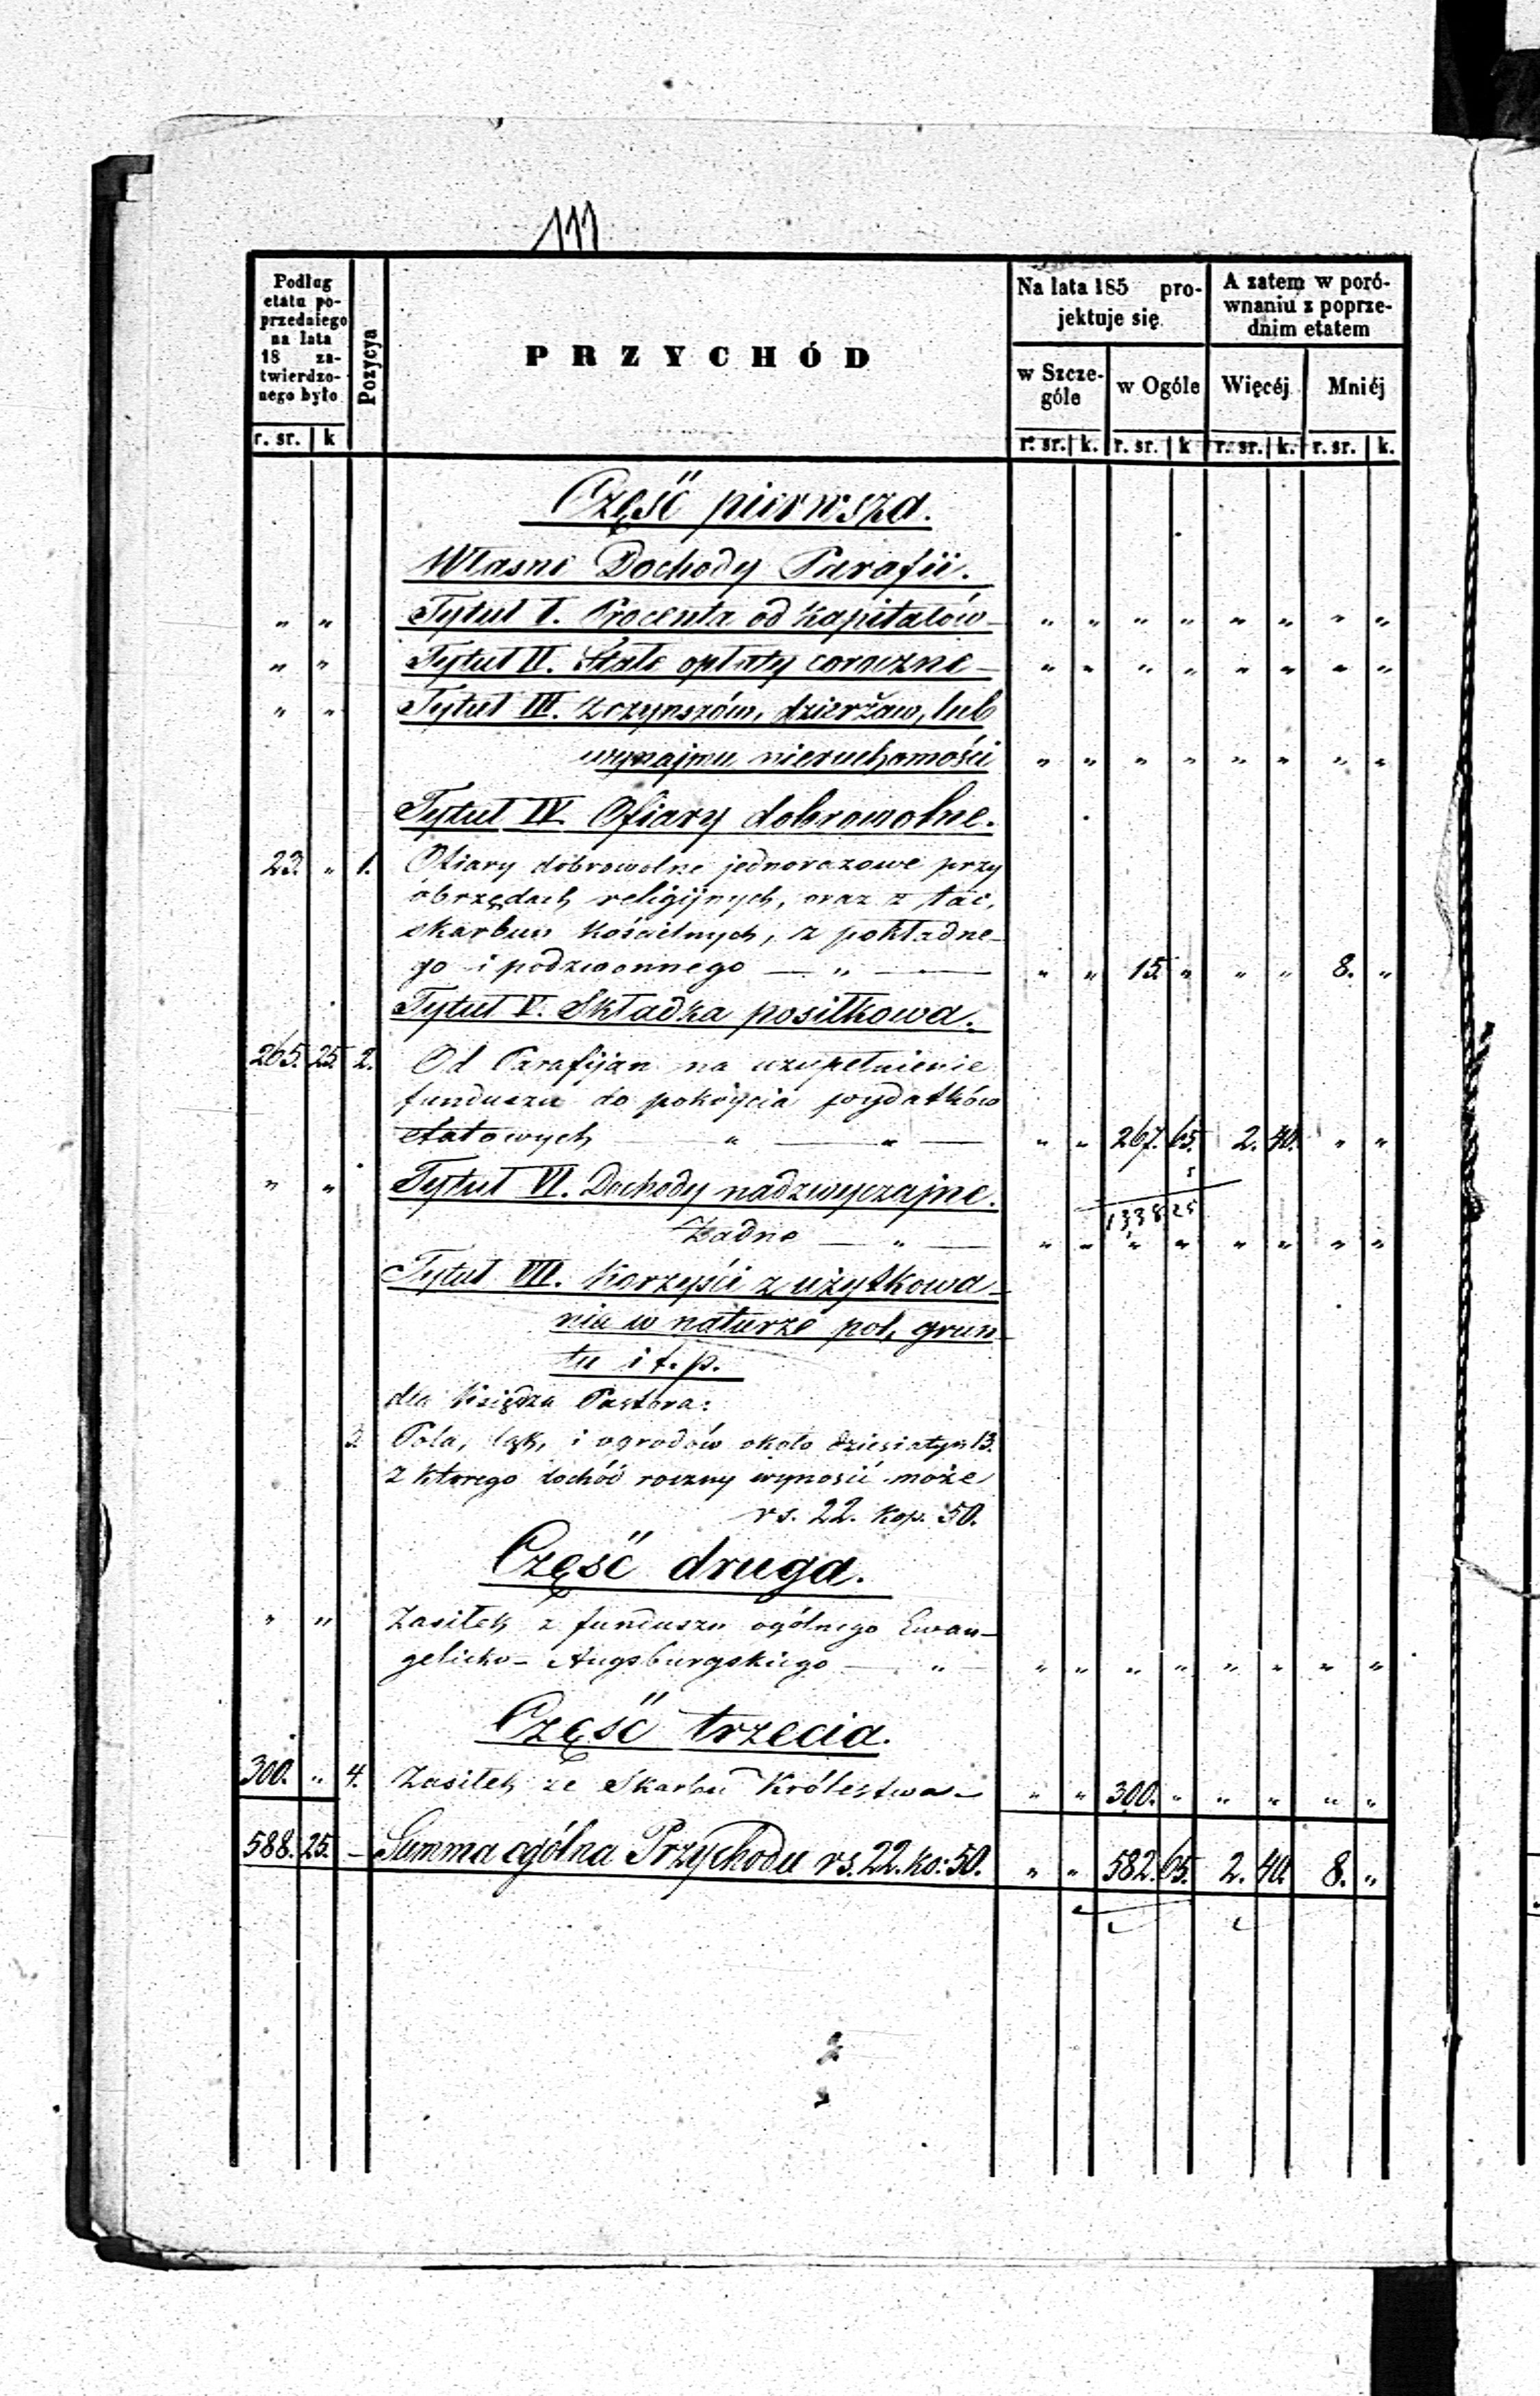 111
Podług
etatu po-
przedniego
na lata
18 za-
twierdzo-
nego było
r. sr. k
Pozycya
PRZYCHÓD
Na lata 185 pro-
jektuje się
w Szcze-
góle
r. sr. k.
w Ogóle
r. sr. k
A zatem w poró-
wnaniu z poprze-
dnim etatem
Więcéj
r. sr. k.
Mniéj
r. sr. k.
Część pierwsza.
Własne Dochody Parafii.
" " Tytuł I. Procenta od kapitałów - " " " " " " " "
" " Tytuł II. Stałe opłaty coroczne - " " " " " " " "
" " Tytuł III. Z czynszów, dzierżaw, lub
wynajmu nieruchomości " " " " " " " "
Tytuł IV. Ofiary dobrowolne.
23. " 1. Ofiary dobrowolne jednorazowe przy
obrzędach religijnych, oraz z tac,
skarbon kościelnych, z pokładne-
go i podzwonnego — " — " " 15. " " " 8. "
Tytuł V. Składka posiłkowa.
265. 25. 2. Od Parafijan na uzupełnienie
funduszu do pokrycia wydatków
etatowych — " — " — " " 267. 65. 2. 40. " "
" " Tytuł VI. Dochody nadzwyczajne.
5
1338 25
Żadne — " — " " " " " " " "
Tytuł VII. Korzyści z użytkowa-
nia w naturze pol, grun-
tu i t. p.
dla Księdza Pastora:
3. Pola, łąk, i ogrodów około dziesiatyn 13.
z którego dochód roczny wynosić może
rs. 22. kop. 50.
Część druga.
" " Zasiłek z funduszu ogólnego Ewan-
gelicko-Augsburgskiego — " — " " " " " " " "
Część trzecia.
300. " 4. Zasiłek ze Skarbu Królestwa - " " 300. " " " " "
588. 25. - Summa ogólna Przychodu rs. 22. ko: 50. " " 582. 65. 2. 40. 8. "